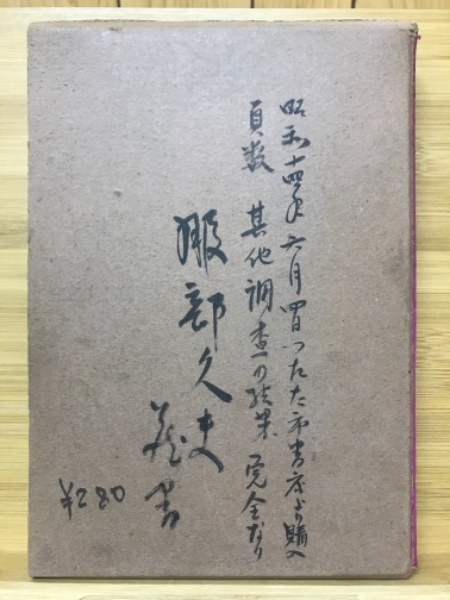 昭和十四年六月四日つたた市書店より購入
頁数 其他調査の結果 完全なり
服部久夫
蔵書
¥280